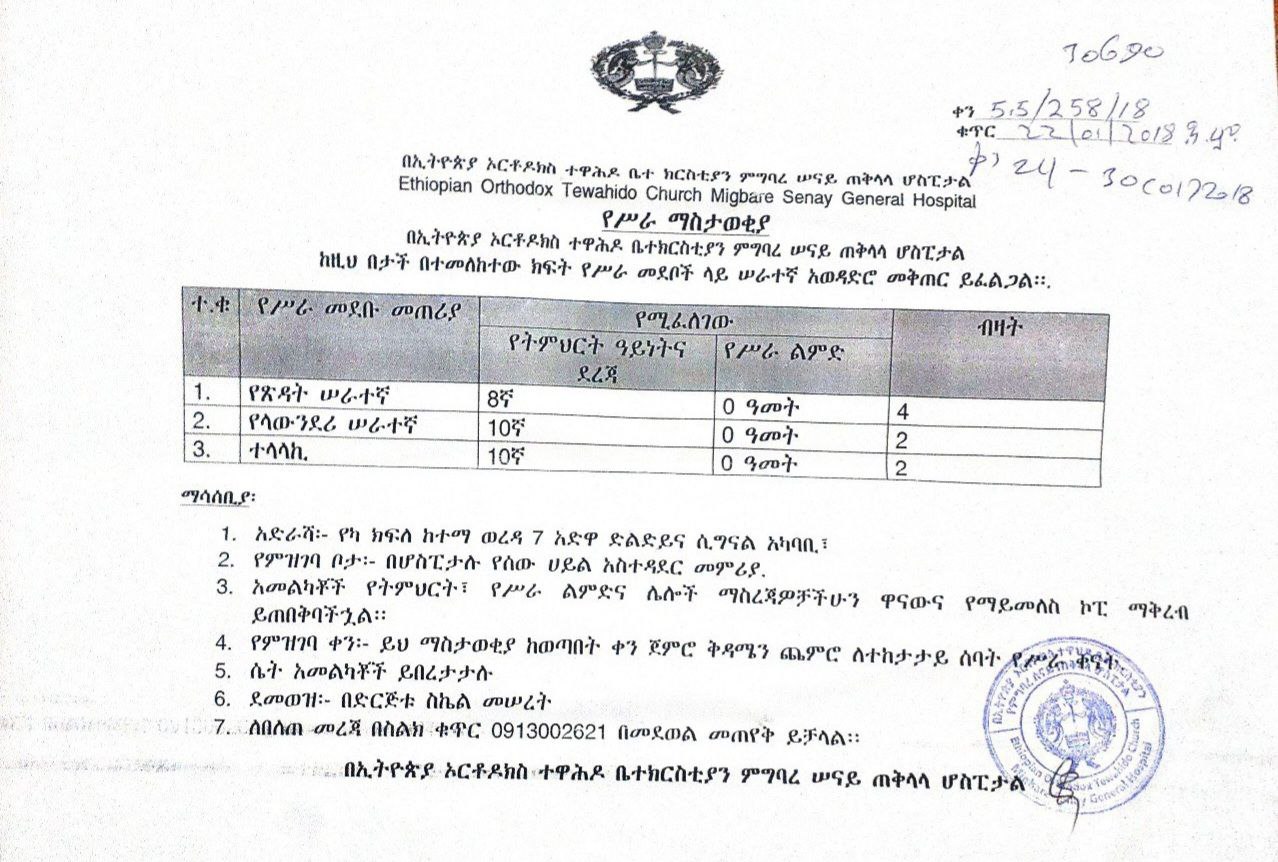 ቀን 5.5/258/18
ቁጥር 22/01/2018 ዓ.ም.
ቀን 24 - 30/01/2018
በኢትዮጵያ ኦርቶዶክስ ተዋሕዶ ቤተ ክርስቲያን ምግባረ ሠናይ ጠቅላላ ሆስፒታል
Ethiopian Orthodox Tewahido Church Migbare Senay General Hospital
የሥራ ማስታወቂያ
በኢትዮጵያ ኦርቶዶክስ ተዋሕዶ ቤተክርስቲያን ምግባረ ሠናይ ጠቅላላ ሆስፒታል
ከዚህ በታች በተመለከተው ክፍት የሥራ መደቦች ላይ ሠራተኛ አወዳድሮ መቅጠር ይፈልጋል፡፡.
ተ.ቁ የሥራ መደቡ መጠሪያ የሚፈለገው ብዛት
የትምህርት ዓይነትና ደረጃ የሥራ ልምድ
1. የጽዳት ሠራተኛ 8ኛ 0 ዓመት 4
2. የላውንደሪ ሠራተኛ 10ኛ 0 ዓመት 2
3. ተላላኪ 10ኛ 0 ዓመት 2
ማሳሰቢያ፡
1. አድራሻ፡- የካ ክፍለ ከተማ ወረዳ 7 አድዋ ድልድይና ሲግናል አካባቢ፣
2. የምዝገባ ቦታ፡- በሆስፒታሉ የሰው ሀይል አስተዳደር መምሪያ.
3. አመልካቾች የትምህርት፣ የሥራ ልምድና ሌሎች ማስረጃዎቻችሁን ዋናውና የማይመለስ ኮፒ ማቅረብ
ይጠበቅባችኋል፡፡
4. የምዝገባ ቀን፡- ይህ ማስታወቂያ ከወጣበት ቀን ጀምሮ ቅዳሜን ጨምሮ ለተከታታይ ሰባት የሥራ ቀናት
5. ሴት አመልካቾች ይበረታታሉ
6. ደመወዝ፡- በድርጅቱ ስኬል መሠረት
7. ለበለጠ መረጃ በስልክ ቁጥር 0913002621 በመደወል መጠየቅ ይቻላል፡፡
በኢትዮጵያ ኦርቶዶክስ ተዋሕዶ ቤተክርስቲያን ምግባረ ሠናይ ጠቅላላ ሆስፒታል
Ethiopian Orthodox Tewahido Church
Migbare Senay General Hospital